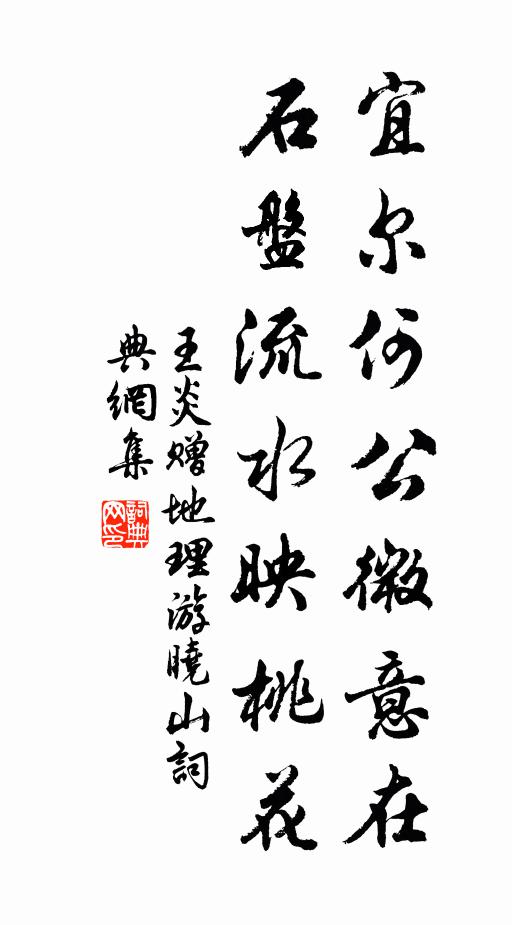 宜尔何公微意在
石盤流水映桃花
王炎赠地理游曉山詞
典網集
詞典
网印